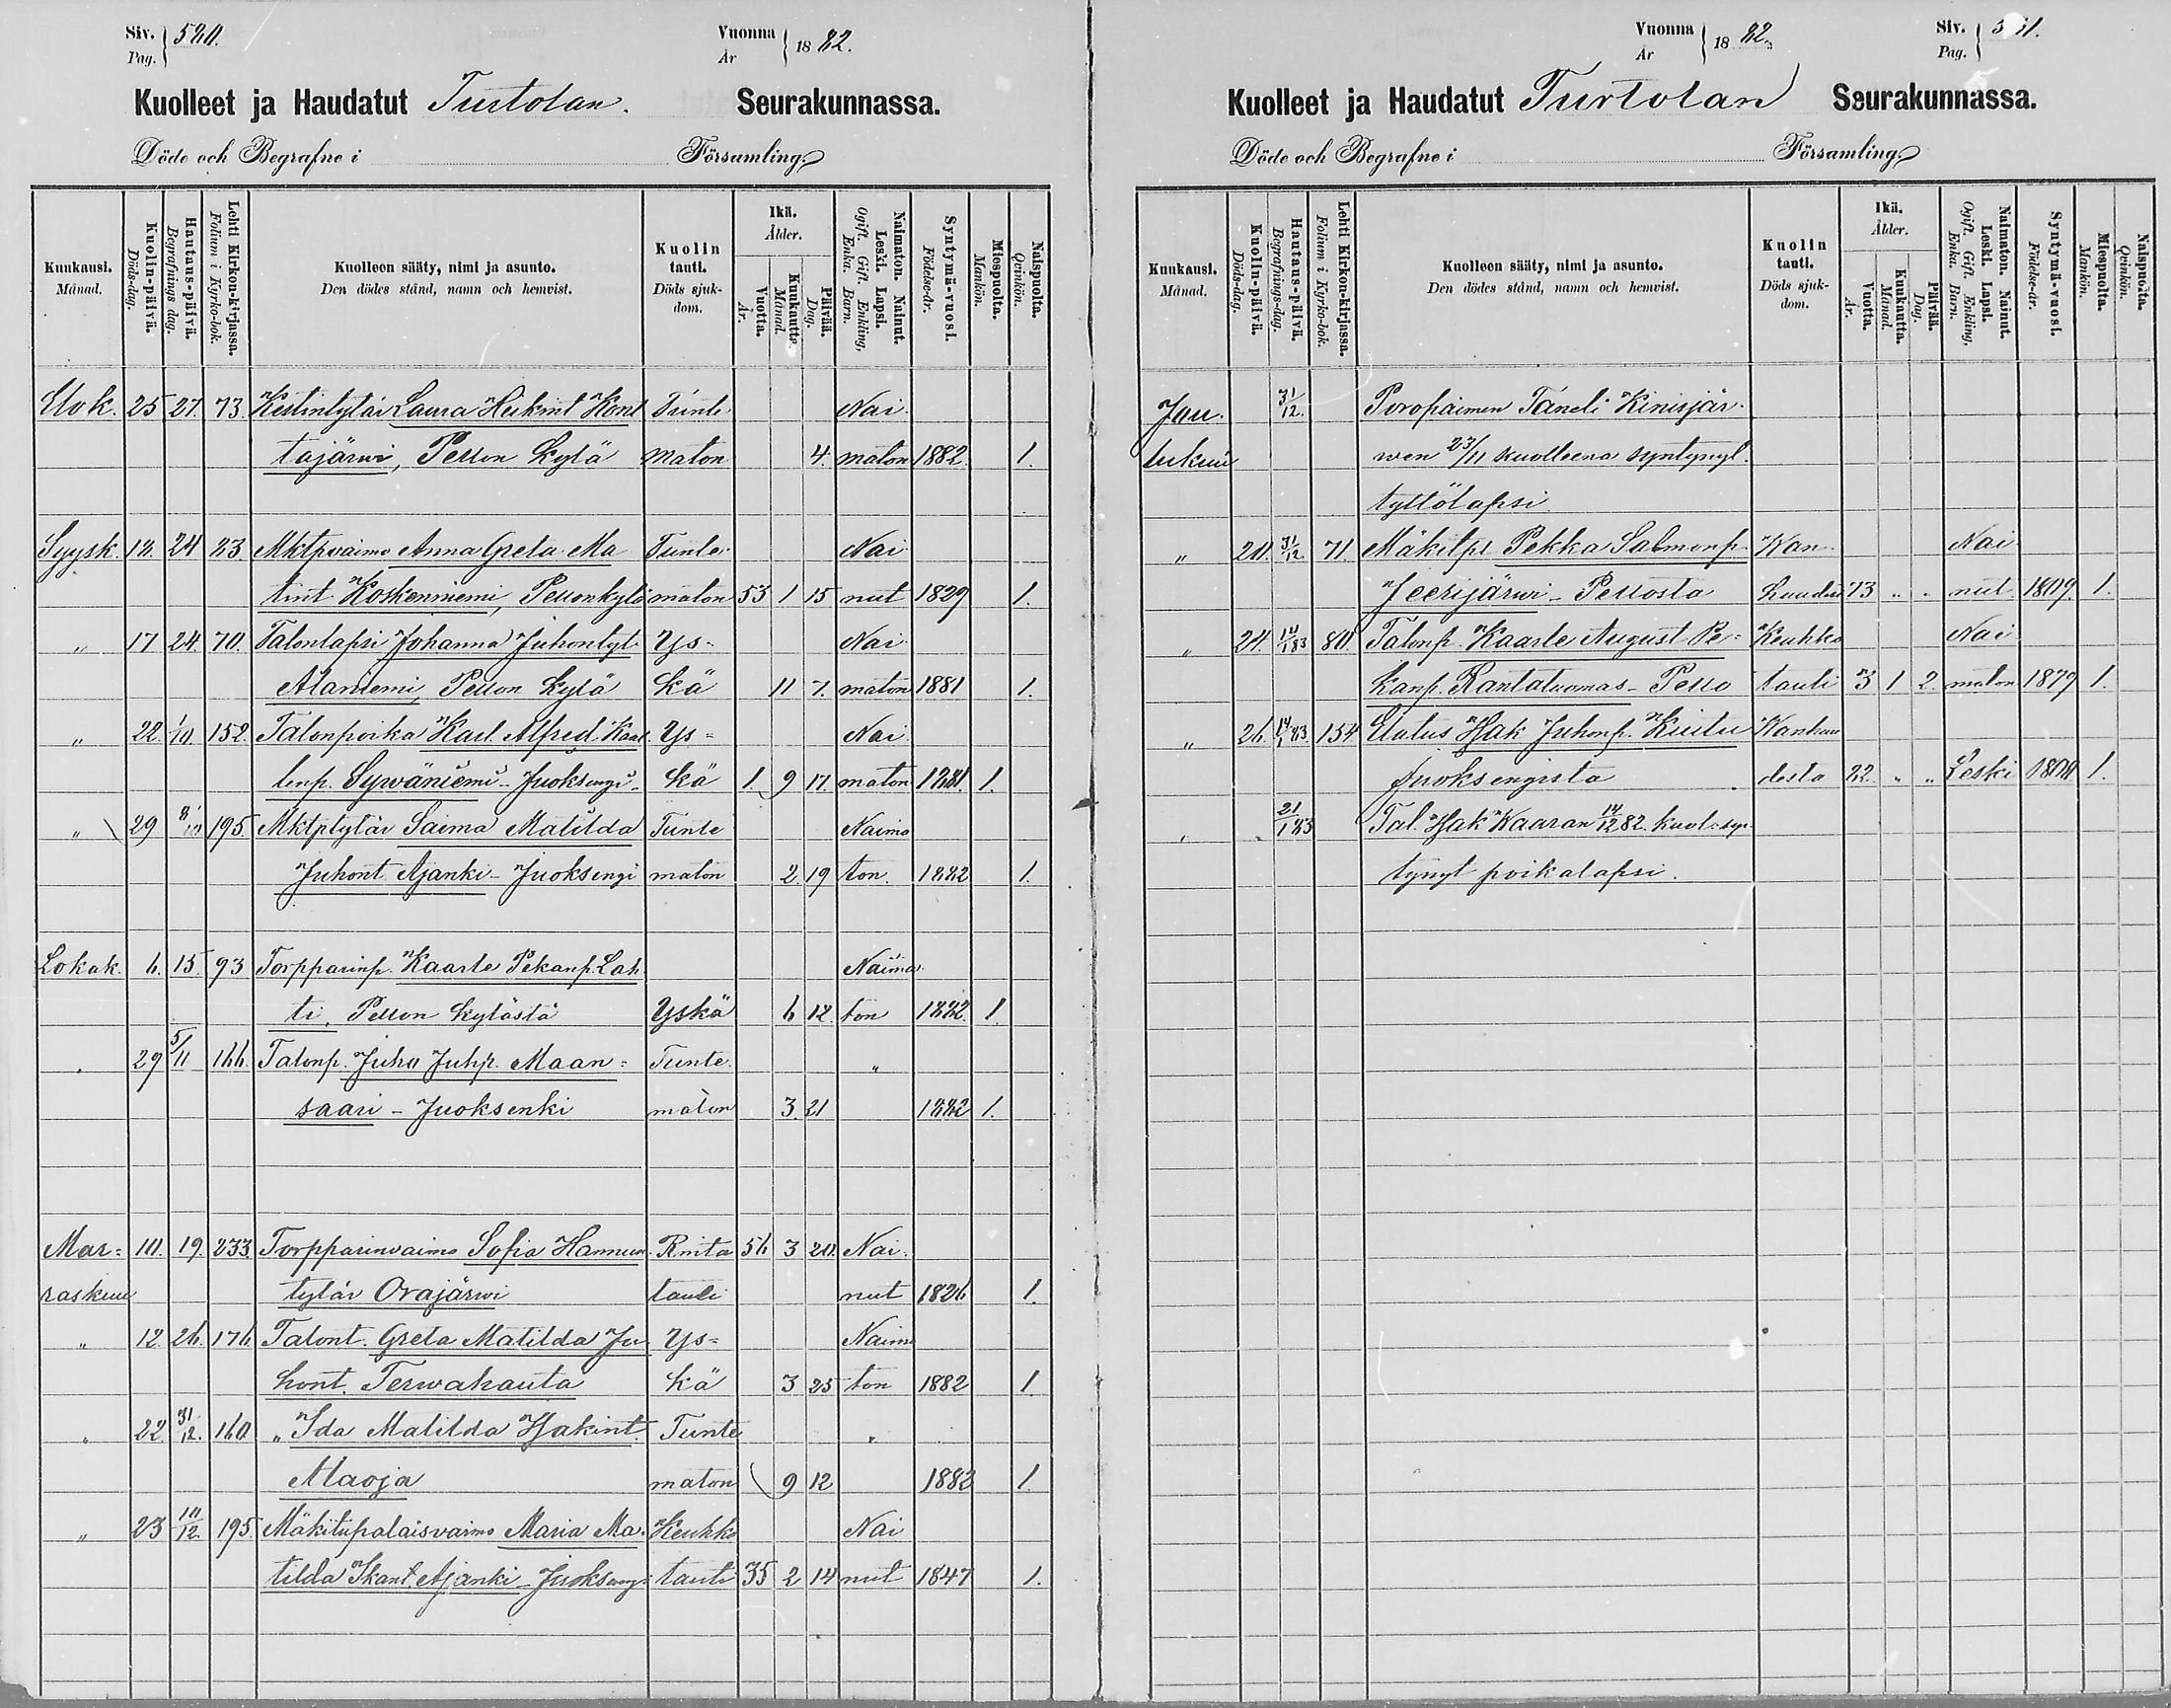 Siv. Pag. 520.
Vuonna År 1882.
Kuolleet ja Haudatut Turtolan. Seurakunnassa.
Döde och Begrafne i Församling.
Kuukausi. Månad.
Kuolin-päivä. Döds-dag.
Hautaus-päivä. Begrafnings dag.
Lehti Kirkon-kirjassa. Folium i Kyrko-bok.
Kuolleen sääty, nimi ja asunto. Den dödes stånd, namn och hemvist.
Kuolin tauti. Döds sjuk-dom.
Ikä. Ålder.
Vuotta. År.
Kuukautta. Månad.
Päivää. Dag.
Naimaton. Nainut. Leski. Lapsi. Ogift. Gift. Enkling, Enka. Barn.
Syntymä-vuosi. Födelse-år.
Miespuolta. Mankön.
Naispuolta. Qvinkön.
Elok. 25 27. 73. Kestintytär Laura Heikint Kont Tunte Nai
tajärwi, Pellon kylä maton 4. maton 1882. 1.
Syysk. 12. 24 23. Mktpvaimo Anna Greta Ma Tunte Nai
tint Koskenniemi, Pellonkylä maton 53 1 15 nut 1829 1.
" 17 24. 70. Talonlapsi Johanna Juhontyt Ys- Nai
Alaniemi, Pellon kylä kä 11 7. maton 1881 1.
" 22. 1/10. 152. Talonpoika Karl Alfred Kaar Ys= Nai
lenp. Sywäniemi - Juoksengi kä 1. 9 17. maton 1881. 1.
" 29 8/10 195. Mktptytär Saima Matilda Tunte Naima
Juhont Ajanki - Juoksengi maton 2. 19 ton. 1882 1.
Lokak. 6. 15. 93 Torpparinp. Kaarle Pekanp. Lah Naima
ti, Pellon kylästä Yskä 6 12. ton 1882. 1.
29 5/11 166. Talonp. Juho Juhp. Maan= Tunte "
saari - Juoksenki maton 3. 21 1882 1.
Mar= 10. 19. 233. Torpparinvaimo Sofia Hannun Rinta 56 3 20. Nai
raskuu tytär Orajärwi tauti nut 1826 1.
" 12. 26. 176. Talont. Greta Matilda Ju Ys= Naima
hont. Terwahauta kä 3 25 ton 1882 1
" 22. 31/12. 160 " Ida Matilda Isakint. Tunte "
Alaoja maton 9 12 1882 1.
" 23 10/12. 195. Mäkitupalaisvaimo Maria Ma. Keuhko Nai
tilda Ikant. Ajanki - Juoksengi tauti 35 2 14 nut 1847 1.
Vuonna År 1882.
Siv. Pag. 521.
Kuolleet ja Haudatut Turtolan Seurakunnassa.
Döde och Begrafne i Församling.
Kuukausi. Månad.
Kuolin-päivä. Döds-dag.
Hautaus-päivä. Begrafnings-dag.
Lehti Kirkon-kirjassa. Folium i Kyrko-bok.
Kuolleen sääty, nimi ja asunto. Den dödes stånd, namn och hemvist.
Kuolin tauti. Döds sjuk-dom.
Ikä. Ålder.
Vuotta. År.
Kuukautta. Månad.
Päivää. Dag.
Naimaton. Nainut. Leski. Lapsi. Ogift. Gift. Enkling, Enka. Barn.
Syntymä-vuosi. Födelse-år.
Miespuolta. Mankön.
Naispuolta. Qvinkön.
Jou- 31/12. Poropaimen Taneli Kinisjär-
lukuu wen 23/11 kuolleena syntynyt
tyttölapsi
" 20. 31/12. 71. Mäkitpl Pekka Salmonp. Wan Nai
Jeerijärwi - Pellosta huudu 73 " " nut 1809. 1.
" 24. 14/1 83 80. Talonp. Kaarle August Pe= Keuhko Nai
kanp. Rantatuomas - Pello tauti 3 1 2. maton 1879 1.
" 26. 14/1 83. 154 Elatus Isak Juhonp. Kuitu Wanhuu
Juoksengista desta 82. " " Leski 1800 1.
" 21/1 83 Tal. Isak Waaran 14/12 82. kuol. syn
tynyt poikalapsi.